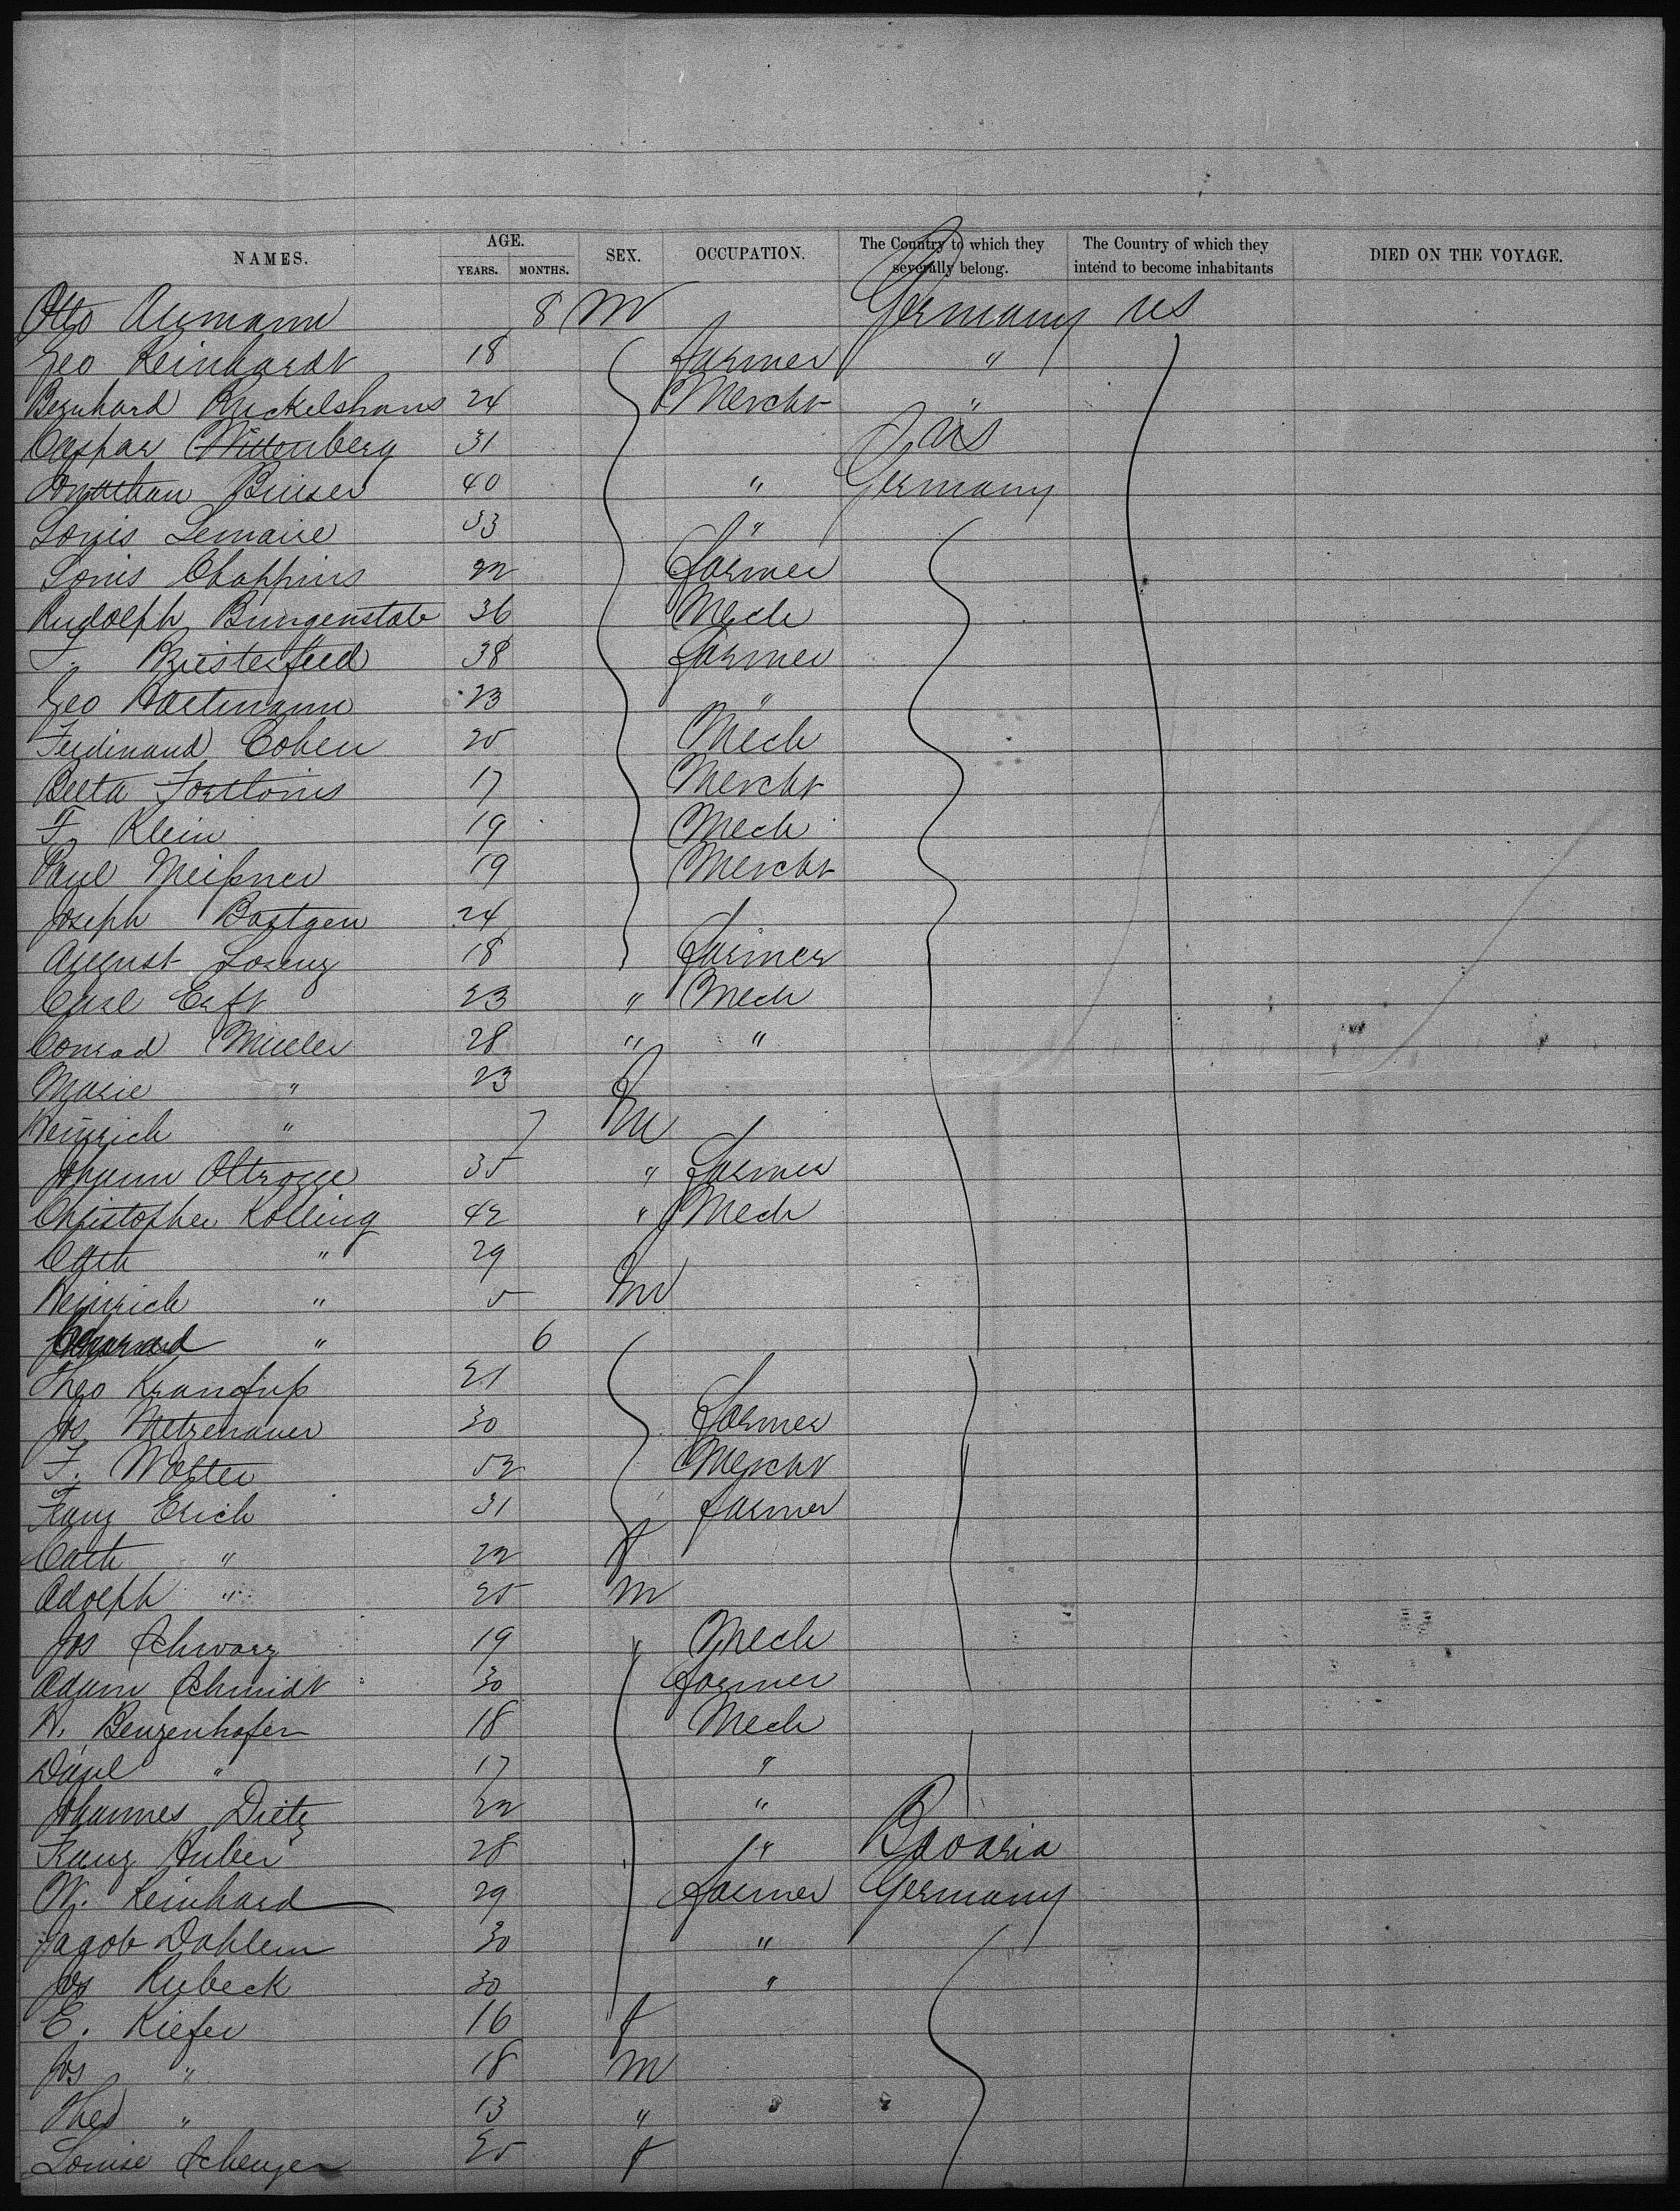 NAMES. AGE. YEARS. MONTHS. SEX. OCCUPATION. The Country to which they severally belong. The Country of which they intend to become inhabitants DIED ON THE VOYAGE.
Otto Aumann 8 M Germany US
Geo Reinhardt 18 farmer "
Bernhard Ruckelshaus 24 Mercht "
Caspar Wittenberg 31 US
Jonathan Buiser 40 " Germany
Louis Lemaire 33 "
Louis Chappius 22 farmer
Rudolph Bungenstab 36 Mech
F. Biesterfeld 38 farmer
Geo Hartmann 23 "
Ferdinand Cohen 20 Mech
Berta Fortlouis 17 Mercht
F. Klein 19 Mech
Paul Meißner 19 Mercht
Joseph Bastgen 24
August Lorenz 18 farmer
Carl Erft 23 " Mech
Conrad Mueller 28 " "
Marie " 23 f
Heinrich " 7 M
Johann Oltrogge 35 " farmer
Christopher Kolling 42 " Mech
Cath " 29 f
Heinrich " 5 M
" 6
Theo 21
Jos Metzenauer 30 farmer
F. Wolter 52 Mercht
Franz Erich 31 farmer
Cath " 22 f
Adolph " 25 M
Jos Schwarz 19 " Mech
Adam Schmidt 30 farmer
H. Benzenhofer 18 Mech
Daul " 17 "
Johannes Dietz 22 "
Franz Huber 28 " Bavaria
W. Reinhard 29 farmer Germany
Jagob Dahlem 30 "
Jos Kubeck 30 "
E. Kiefer 16 f
Jos " 18 M
Theo " 13 "
Louise Schenzer 25 f